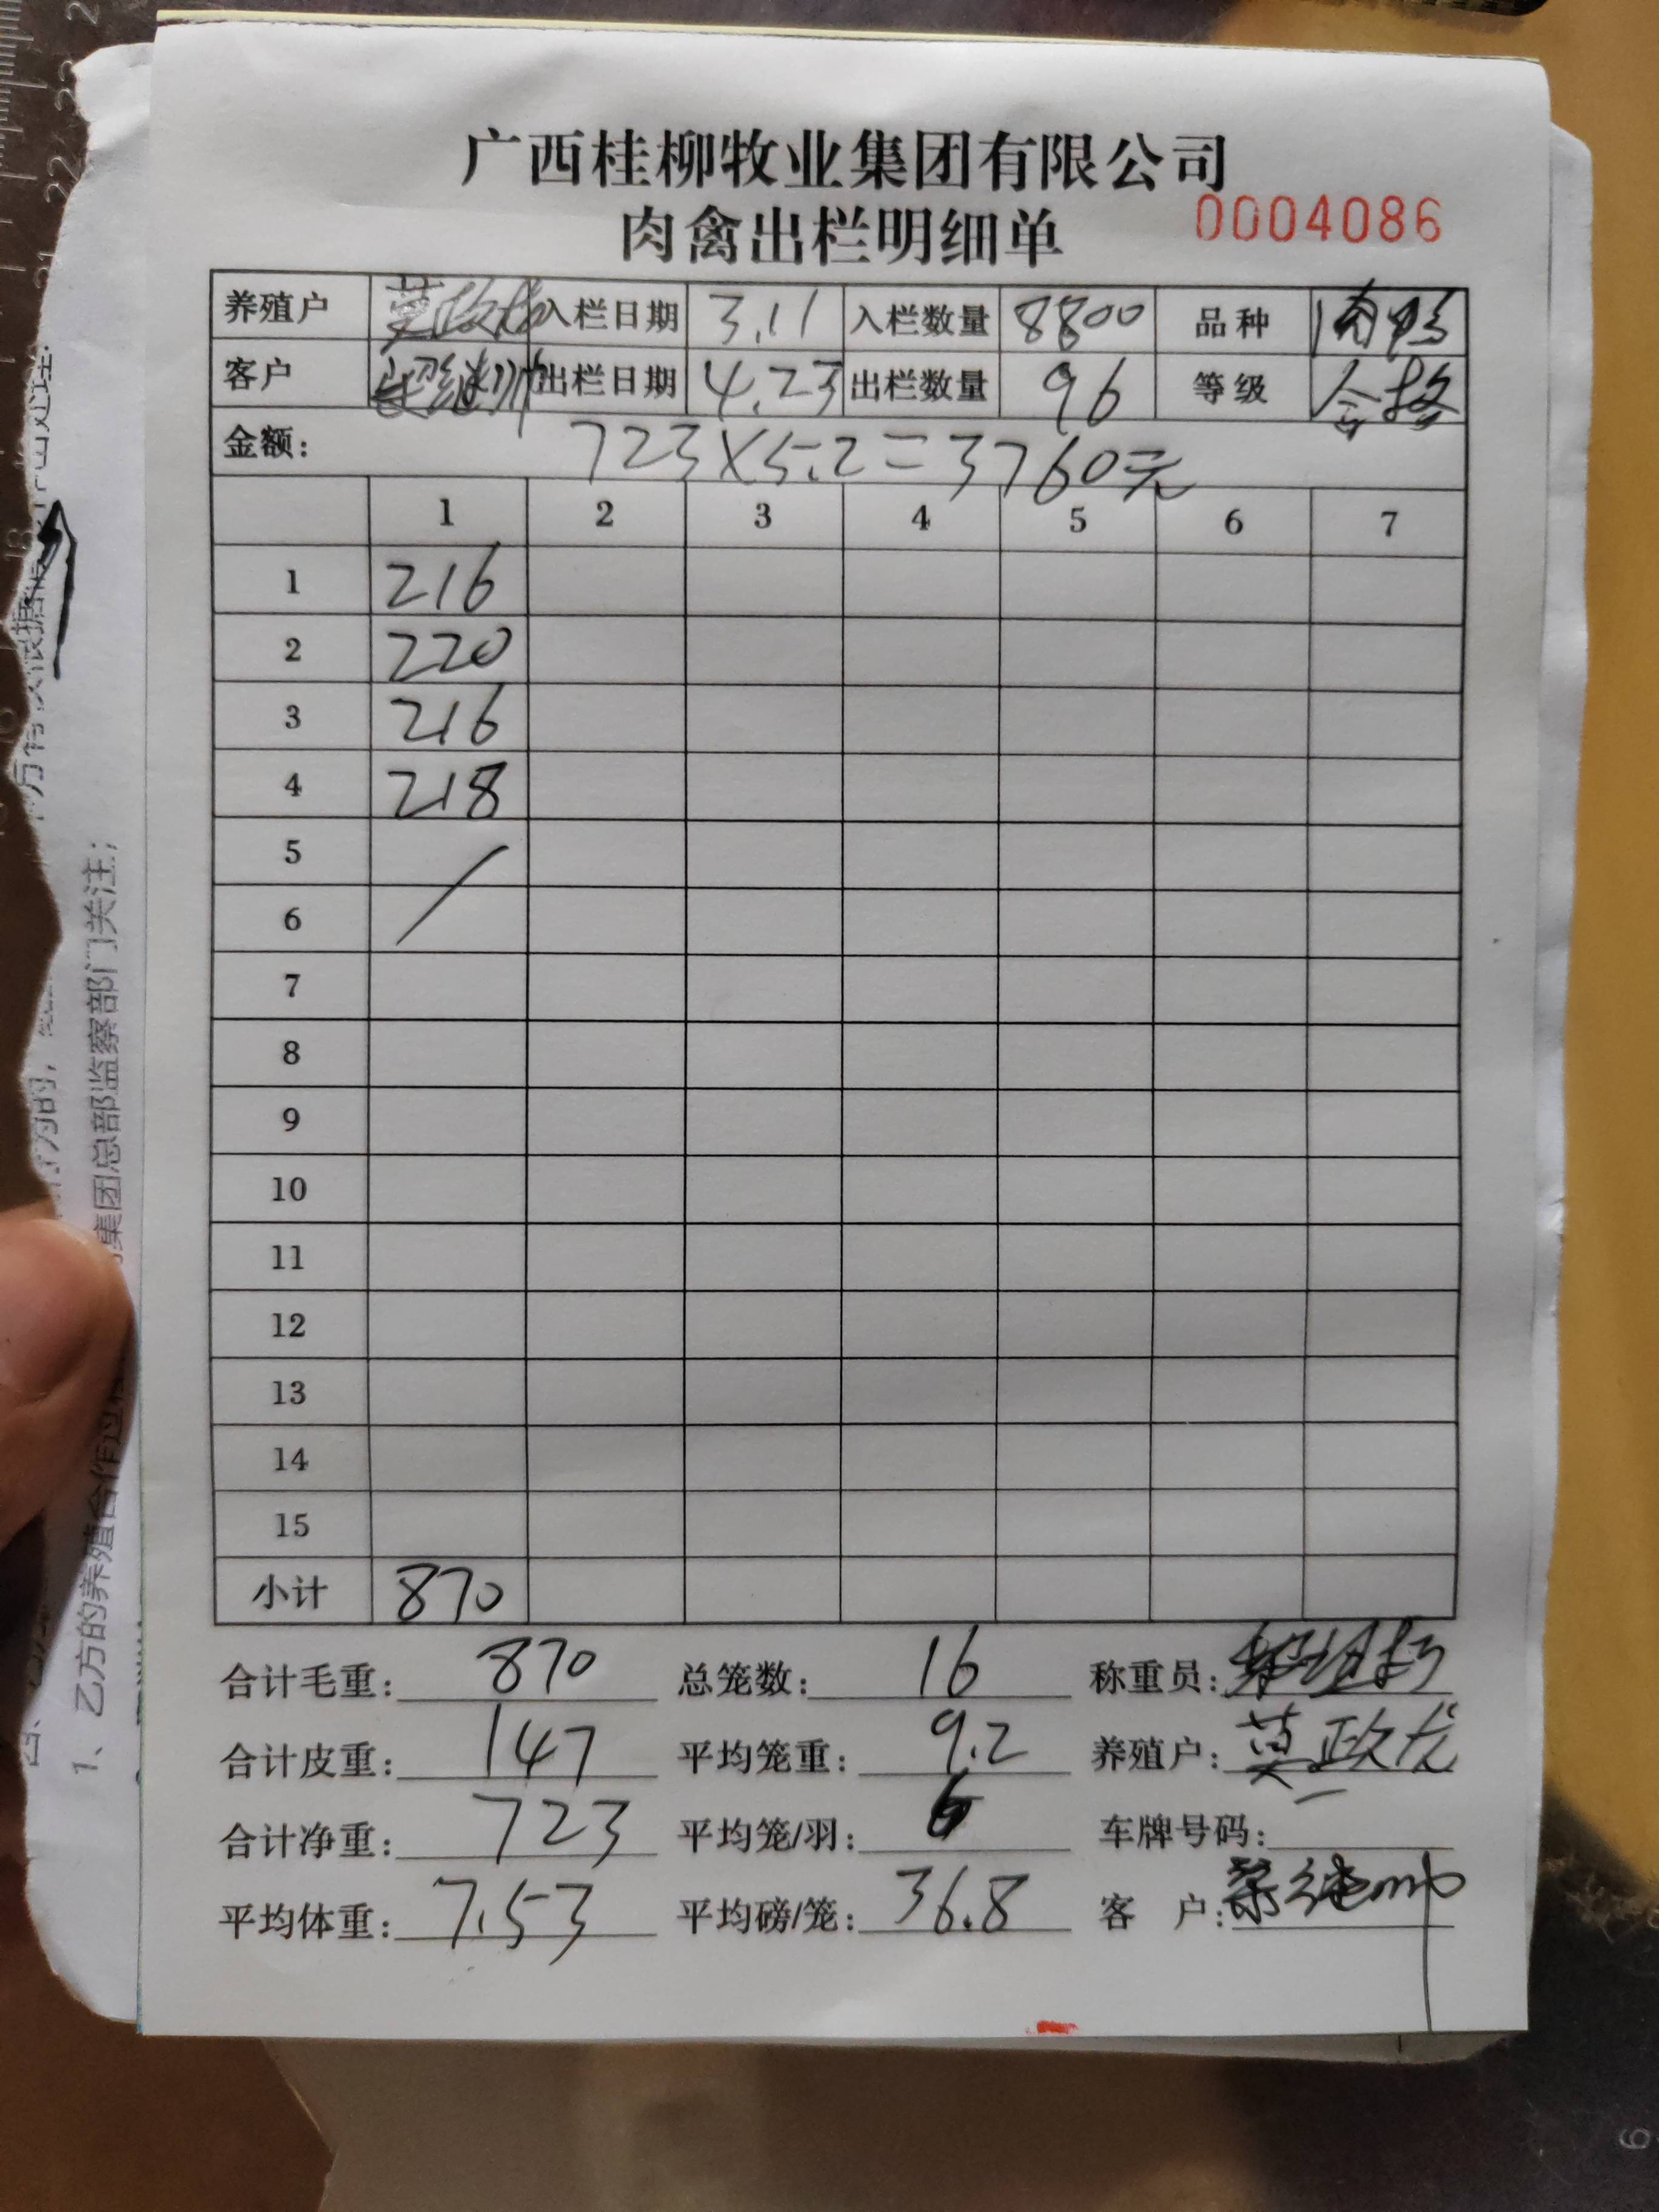 广西桂柳牧业集团有限公司
肉禽出栏明细单 0004086
养殖户 莫政龙 入栏日期 3.11 入栏数量 8800 品种 肉鸭
客户 出栏日期 4.23 出栏数量 96 等级 合格
金额: 723×5.2=3760元
1 2 3 4 5 6 7
1 216
2 220
3 216
4 218
5
6
7
8
9
10
11
12
13
14
15
小计 870
合计毛重: 870 总笼数: 16 称重员:
合计皮重: 147 平均笼重: 9.2 养殖户: 莫政龙
合计净重: 723 平均笼/羽: 6 车牌号码:
平均体重: 7.53 平均磅/笼: 36.8 客 户:
集团总部监察部门关注;
1、乙方的养殖合作过